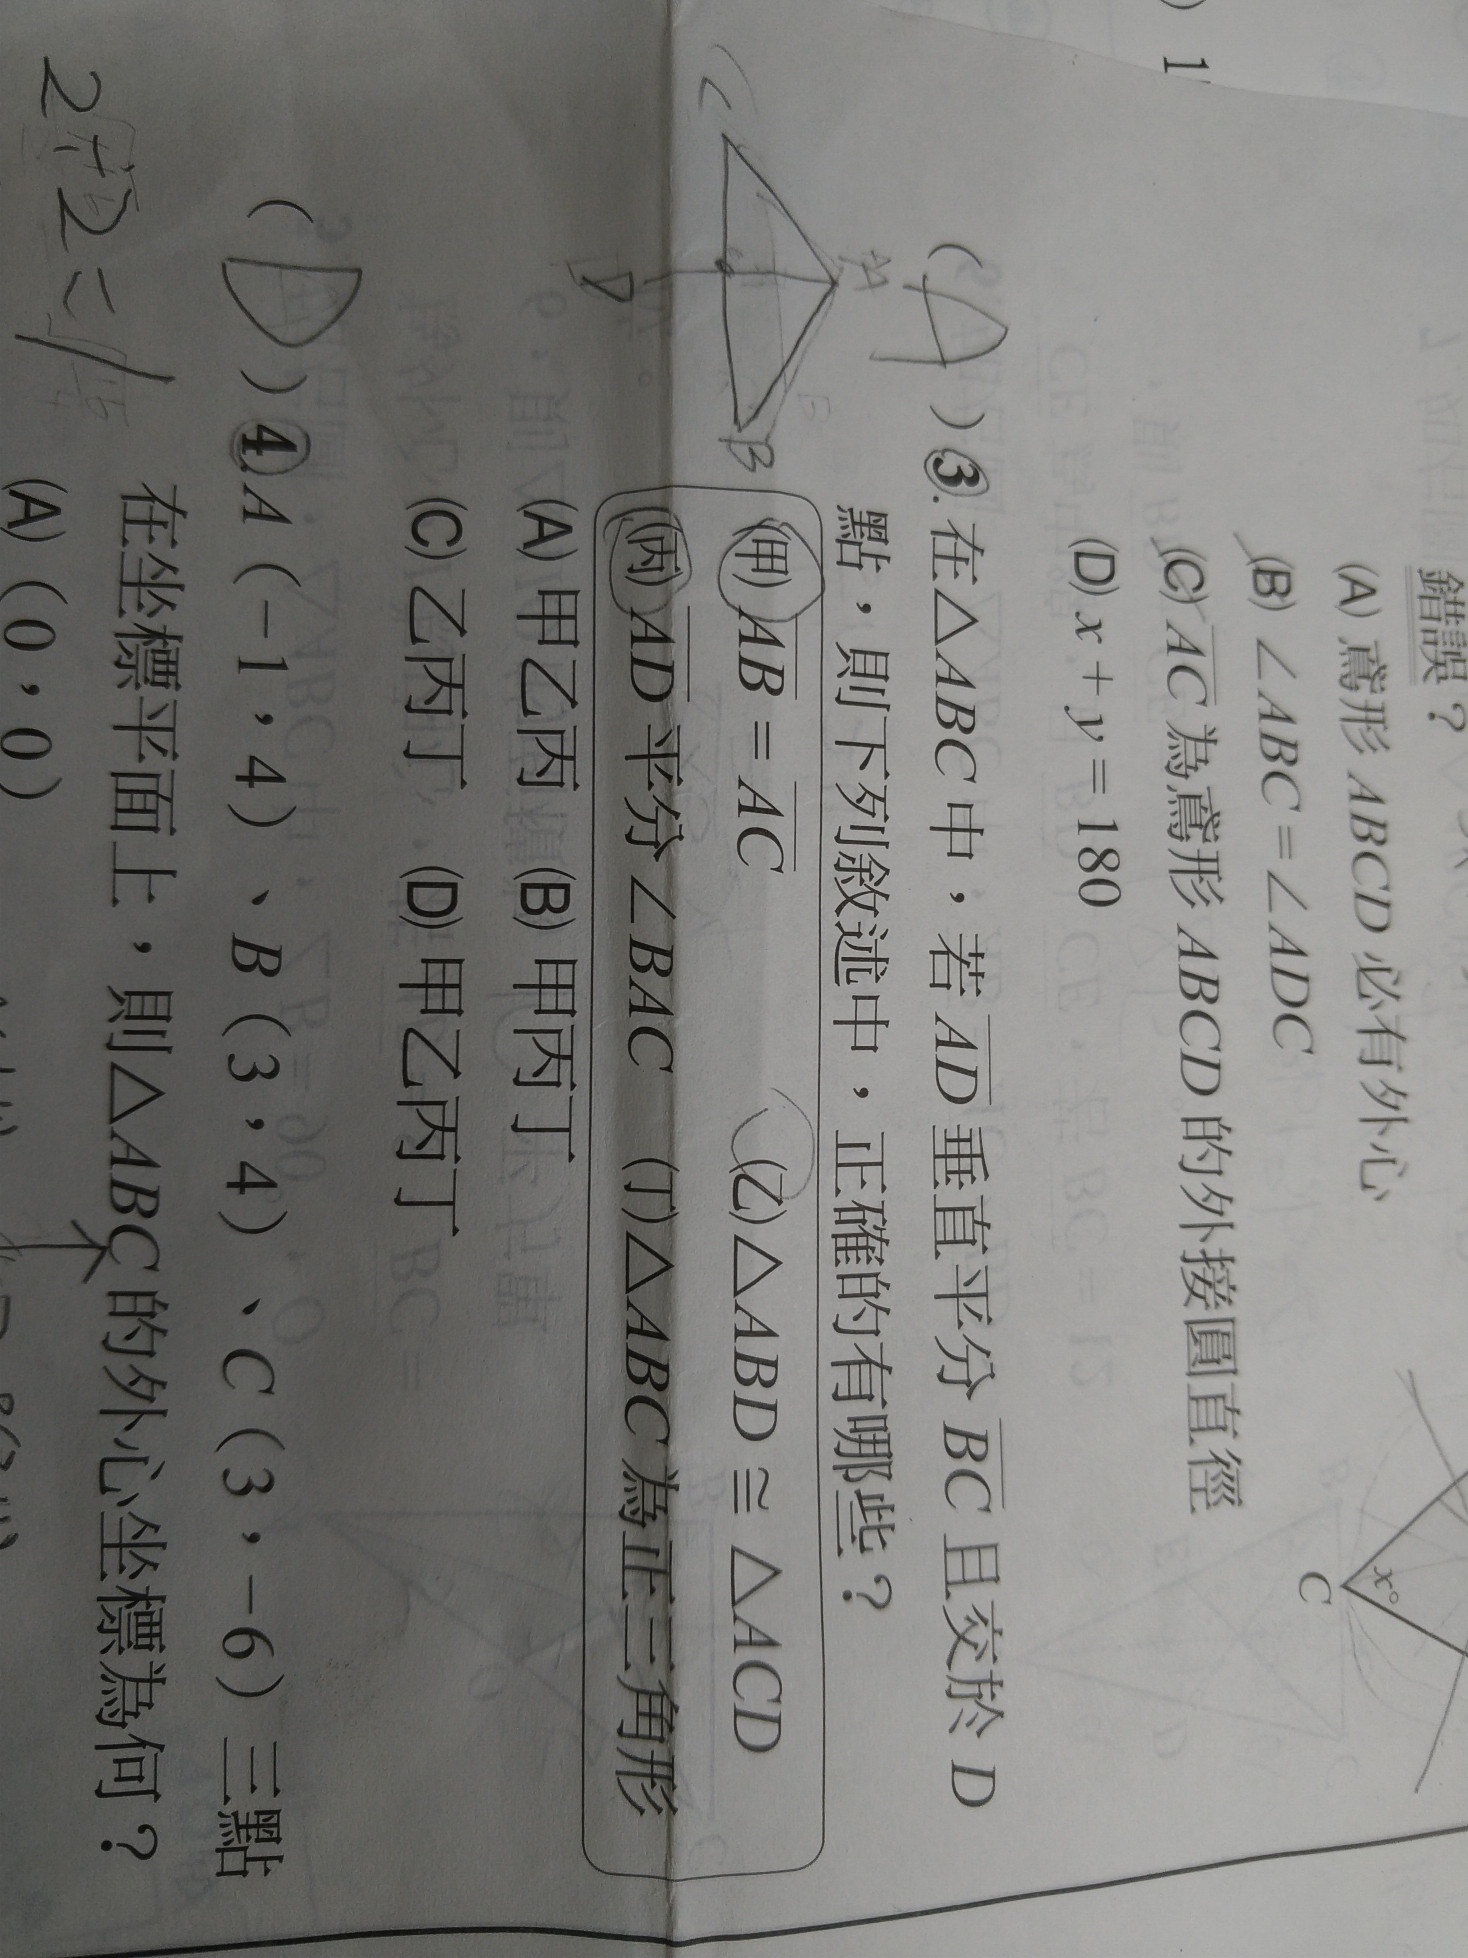 錯誤？
(A) 鳶形 ABCD 必有外心
(B) ∠ABC＝∠ADC
(C) AC 為鳶形 ABCD 的外接圓直徑
(D) x＋y＝180
x°
C
(A) ③. 在△ABC 中，若 AD 垂直平分 BC 且交於 D
點，則下列敘述中，正確的有哪些？
(甲) AB＝AC (乙) △ABD ≅ △ACD
(丙) AD 平分∠BAC (丁) △ABC 為正三角形
(A) 甲乙丙 (B) 甲丙丁
(C) 乙丙丁 (D) 甲乙丙丁
A
C
B
D
(D) ④. A（－1，4）、B（3，4）、C（3，－6）三點
在坐標平面上，則△ABC 的外心坐標為何？
(A)（0，0）
2+2=